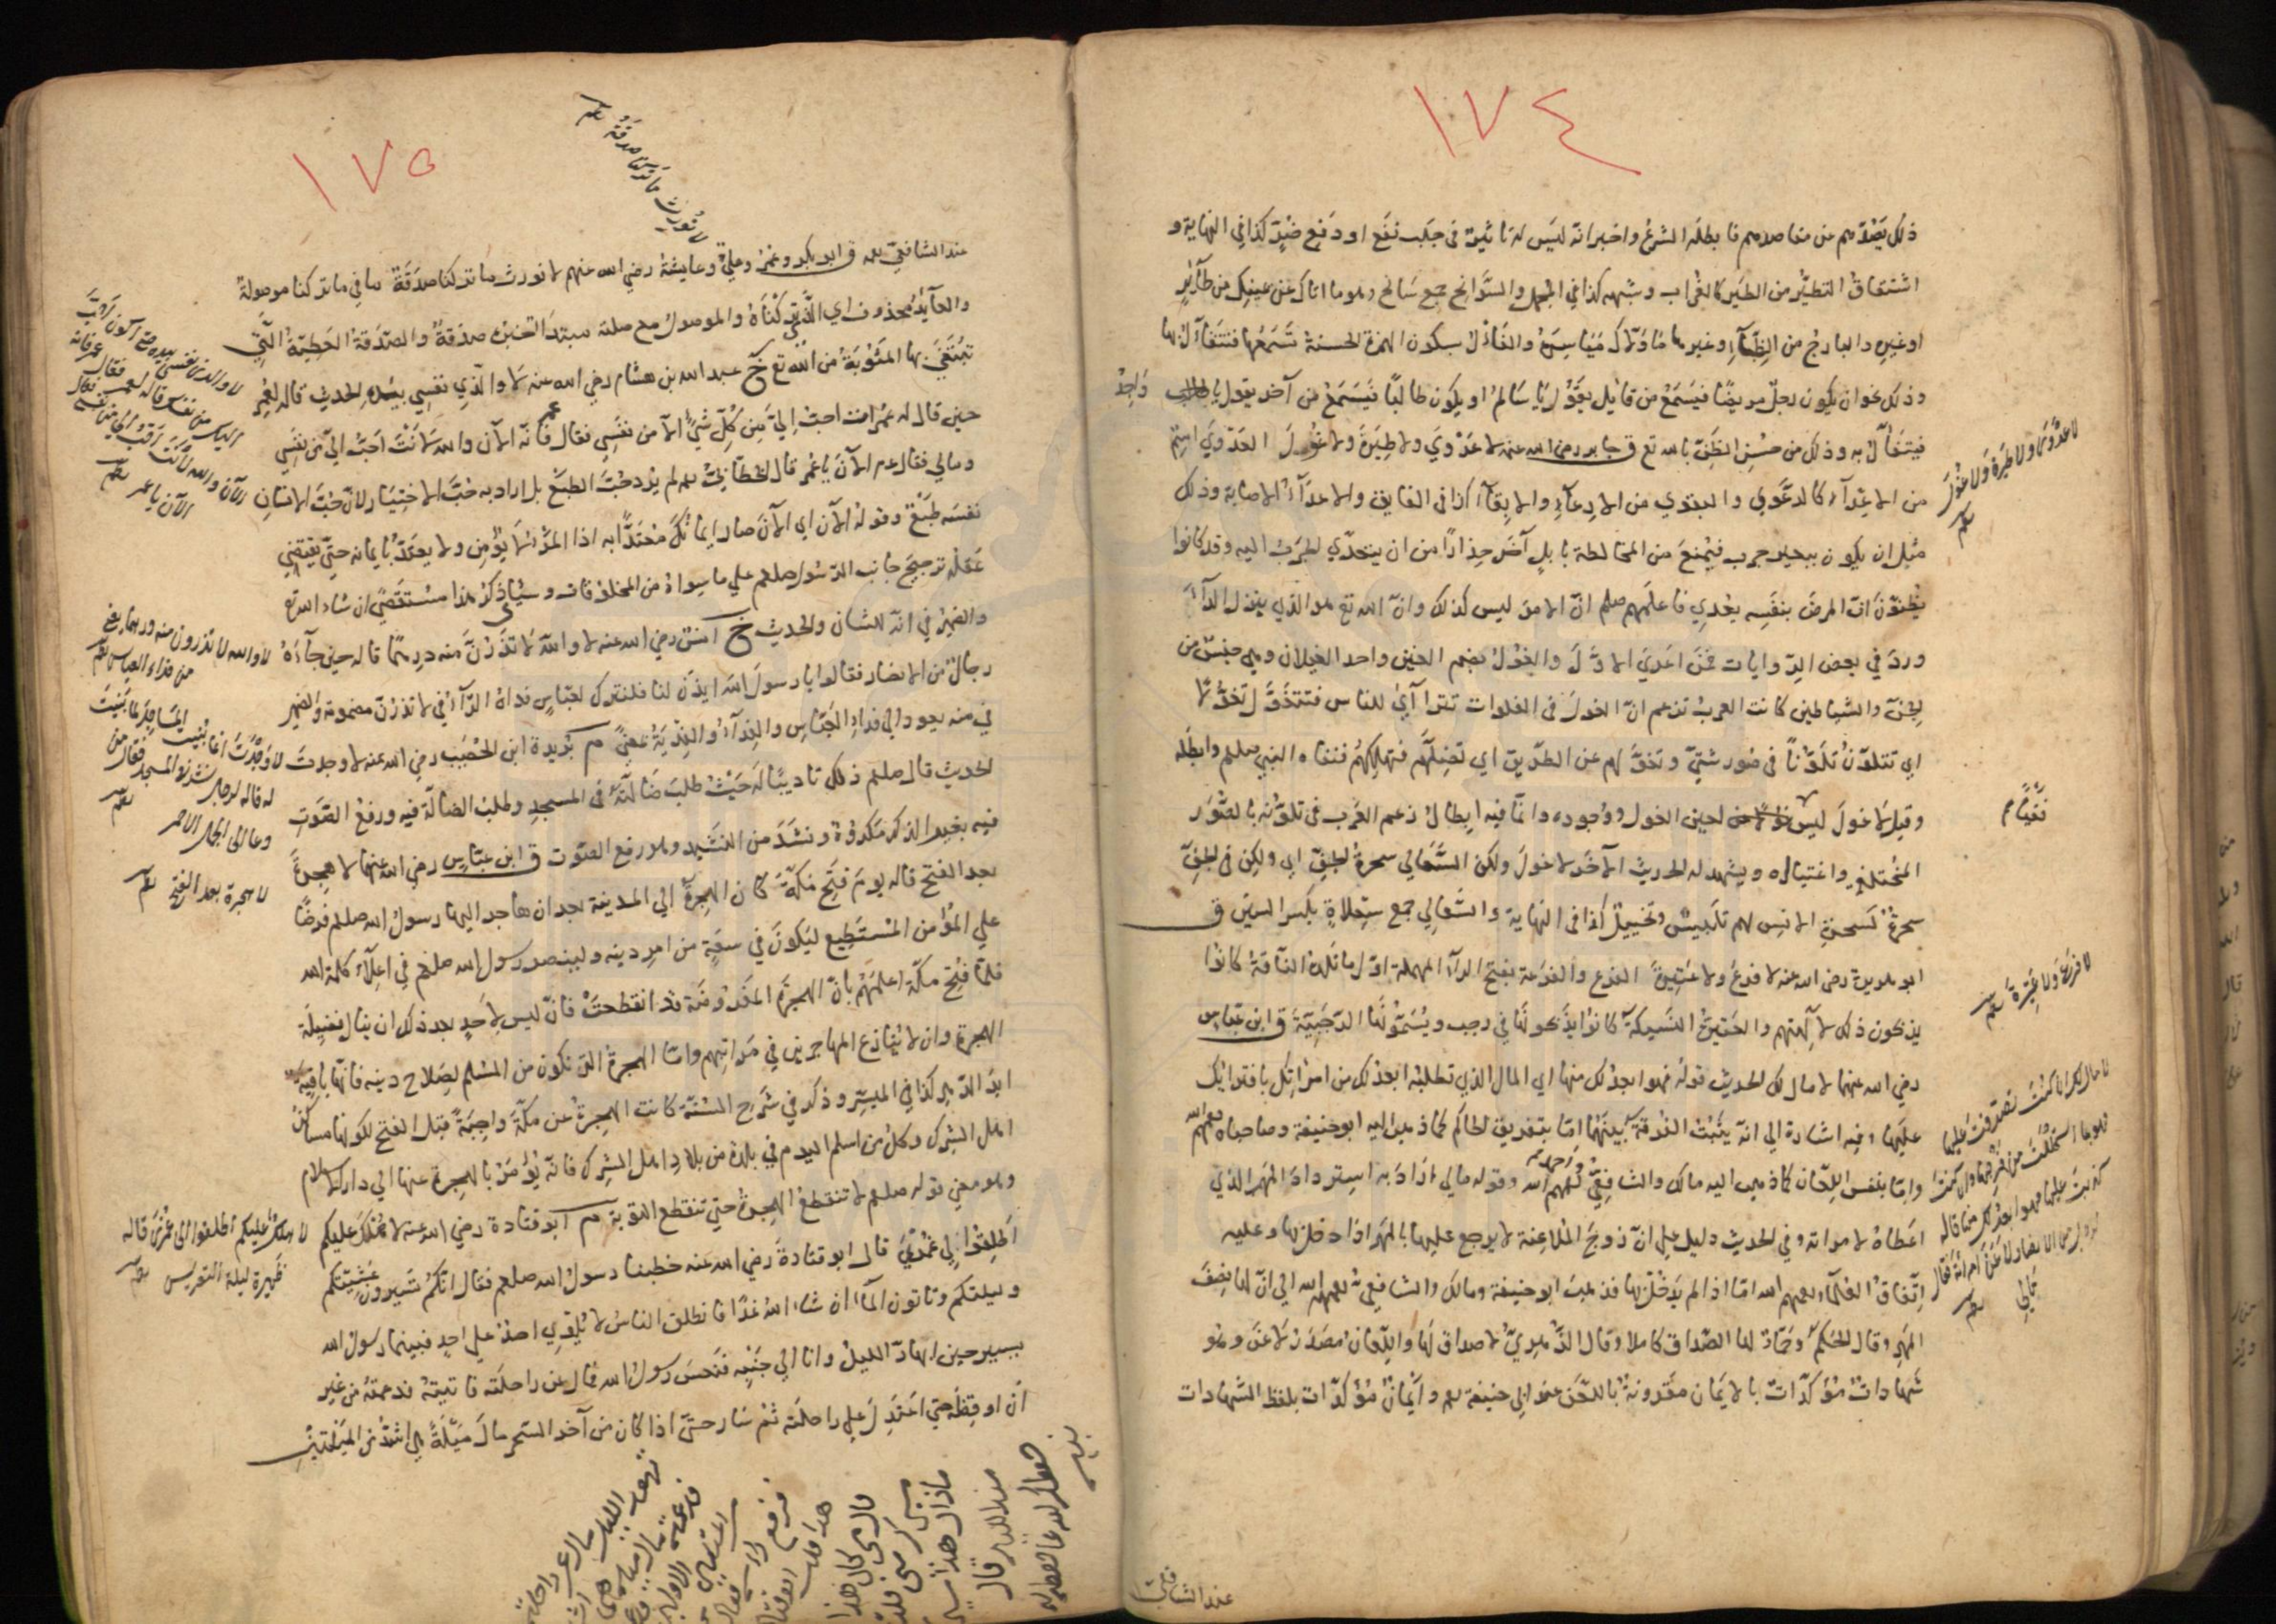 ١٧٤
ذلك يصدهم عن مقاصدهم فابطله الشرع واخبر انه ليس له تاثير في جلب نفع او دفع ضر كذا في النهاية و
اشتقاق التطير من الطير كالغراب وشبهه كذا في المجمل والسوانح جمع سانح وهو ما اتاك عن يمينك من طائر
او غيره والبارح من الظباء وغيرها ما ولاك مياسره والفأل بسكون الهمزة الحسنة تسمعها فتتفاءل بها
وذلك نحو ان يكون رجل مريضا فيسمع من قايل يقول يا سالم او يكون طالبا فيسمع من آخر يقول يا واجد
فيتفأل به وذلك من حسن الظن بالله تع ق جابر رضي الله عنه لا عدوي ولا طيرة ولا غول العدوي اسم
من الاعداء كالدعوي والبقوي من الادعاء والابقاء كذا في الفايق والاعداء الاصابة وذلك
مثل ان يكون ببعير جرب فيمنع من المخالطة بابل آخر حذارا من ان يتعدي لجرب اليه وقد كانوا
يظنون ان المرض بنفسه يعدي فاعلمهم صلعم ان الامر ليس كذلك وان الله تع هو الذي ينزل الداء
ورد في بعض الروايات فمن اعدي الاول والغول بضم الغين واحد الغيلان وهي جنس من
لجن والشياطين كانت العرب تزعم ان الغول في الفلوات تتراآي للناس فتتغول تغولا
اي تتلون تلونا في صور شتي وتغولهم عن الطريق اي تضلهم فتهلكهم فنفاه النبي صلعم وابطله
وقيل لا غول ليس نفيا لعين الغول ووجوده وانما فيه ابطال زعم العرب في تلونه بالصور
المختلفة واغتياله ويشهد له الحديث الآخر لا غول ولكن السعالي سحرة لجن اي ولكن في لجن
سحرة كسحرة الانس لهم تلبيس وتخييل كذا في النهاية والسعالي جمع سعلاة بكسر السين ق
ابو هريرة رضي الله عنه لا فرع ولا عتيرة الفرع والفرعة بفتح الراء المهملة اول ما تلده الناقة كانوا
يذبحون ذلك لآلهتهم والعتيرة النسيكة كانوا يذبحونها في رجب ويسمونها الرجبية ق ابن عباس
رضي الله عنهما لا مال لك الحديث قوله فهو ابعد لك منها اي المال الذي تطلبه ابعد لك من امراتك بافترائك
عليها وفيه اشارة الي انه يثبت الفرقة بينهما اما بتفريق لحاكم كما ذهب اليه ابو حنيفة وصاحباه رحمهم الله
واما بنفس اللعان كما ذهب اليه مالك والشافعي وزفر رحمهم الله وقوله مالي اراد به استرداد المهر الذي
اعطاه لامراته وفي الحديث دليل علي ان زوج الملاعنة لا يرجع عليها بالمهر اذا دخل بها وعليه
اتفاق العلماء رحمهم الله اما اذا لم يدخل بها فذهب ابو حنيفة ومالك والشافعي رحمهم الله الي ان لها نصف
المهر وقال الحكم وحماد لها الصداق كاملا وقال الزهري لا صداق لها واللعان مصدر لاعن وهو
شهادات مؤكدات بالايمان مقرونة باللعن عند ابي حنيفة رحمه وايمان مؤكدات بلفظ الشهادات
عند الشافعي
لا عدوي ولا طيرة ولا غول
نفيا م
لا فرع ولا عتيرة
لا مال لك ان كنت صدقت عليها
فهو بما استحللت من فرجها وان كنت
كذبت عليها فهو ابعد لك منها قاله
١٧٥
لا نورث ما تركنا صدقة
عند الشافعي رحمه ق ابو بكر وعمر وعلي وعايشة رضي الله عنهم لا نورث ما تركنا صدقة ما في ما تركنا موصولة
والعايد محذوف اي الذي تركناه والموصول مع صلته مبتدا لخبر صدقة والصدقة العطية التي
تبتغي بها المثوبة من الله تع خ عبد الله بن هشام رضي الله عنه لا والذي نفسي بيده الحديث قاله لعمر
حين قال له عمر انت احب الي من كل شيء الا من نفسي فقال عمر فانه الآن والله لانت احب الي من نفسي
ومالي فقال عم الآن يا عمر قال لخطابي رحمه لم يرد حب الطبع بل اراد به حب الاختيار لان حب الانسان
نفسه طبع وقوله الآن اي الآن صار ايمانك معتدا به اذا المرء لا يؤمن ولا يعتد بايمانه حتي يقتضي
عقله ترجيح جانب الرسول صلعم علي ما سواه من المخلوقات وسياتي ذكر هذا مستقصي ان شاء الله تع
والضمير في انه للشان والحديث خ انس رضي الله عنه لا والله لا تذرن منه درهما قاله حين جاءه
رجال من الانصار فقالوا يا رسول الله ايذن لنا فلنترك لعباس فداه الراء في لا تذرن مضمومة والضمير
في منه يعود الي فداء العباس والفداء والفدية بمعني م بريدة ابن الحصيب رضي الله عنه لا وجدت
الحديث قال صلعم ذلك تاديبا له حيث طلب ضالته في المسجد وطلب الضالة فيه ورفع الصوت
فيه بغير الذكر مكروه ونشد من النشيد وهو رفع الصوت ق ابن عباس رضي الله عنهما لا هجرة
بعد الفتح قاله يوم فتح مكة كان الهجرة الي المدينة بعد ان هاجر اليها رسول الله صلعم فرضا
علي المؤمن المستطيع ليكون في سعة من امر دينه ولينصر رسول الله صلعم في اعلاء كلمة الله
فلما فتح مكة اعلمهم بان الهجرة المفروضة قد انقطعت فان ليس لاحد بعد ذلك ان ينال فضيلة
الهجرة وان لا ينازع المهاجرين في مراتبهم واما الهجرة التي تكون من المسلم لصلاح دينه فانها باقية
ابد الدهر كذا في الميسر وذكر في شرح السنة كانت الهجرة عن مكة واجبة قبل الفتح لكونها مساكن
اهل الشرك وكل من اسلم اليوم في بلدة من بلاد اهل الشرك فانه يؤمر بالهجرة عنها الي دار الاسلام
وهو معني قوله صلعم لا تنقطع الهجرة حتي تنقطع التوبة م ابو قتادة رضي الله عنه لا هلك عليكم
اطلقوا لي غمري قال ابو قتادة رضي الله عنه خطبنا رسول الله صلعم فقال انكم تسيرون عشيتكم
وليلتكم وتاتون الماء ان شاء الله غدا فانطلق الناس لا يلوي احد علي احد فبينما رسول الله
يسير حين ابهار الليل وانا الي جنبه فنعس رسول الله فمال عن راحلته فاتيته فدعمته من غير
ان اوقظه حتي اعتدل علي راحلته ثم سار حتي اذا كان من آخر السحر مال ميلة هي اشد من الميلتين
لا والذي نفسي بيده حتي اكون احب
اليك من نفسك قاله لعمر فقال
الآن والله لانت احب الي من نفسي
الآن يا عمر
لا والله لا تذرون منه درهما
من فداء العباس
لا وجدت انما بنيت المساجد لما بنيت
له قاله لرجل نشد في المسجد فقال من
دعا الي الجمل الاحمر
لا هجرة بعد الفتح
لا هلك عليكم اطلقوا لي غمري قاله
ظهيرة ليلة التعريس